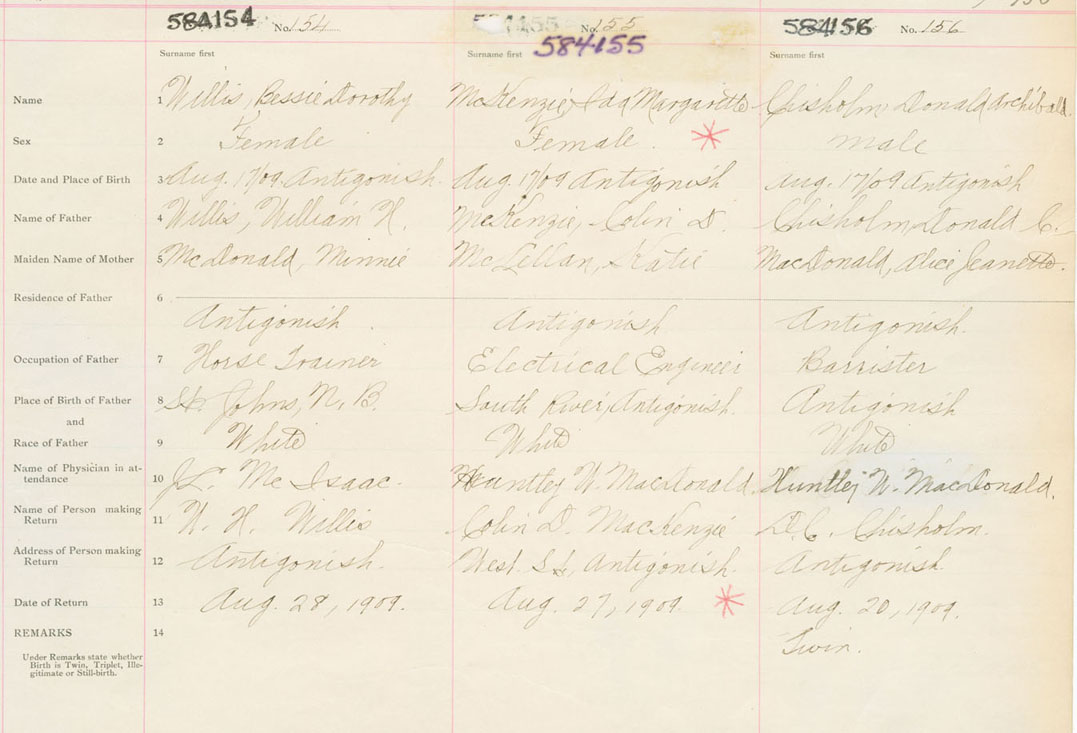 584154 No. 154 584155 No. 155 584156 No. 156
Surname first Surname first 584155 Surname first
Name 1 Willis, Bessie Dorothy McKenzie, Ida Margarette Chisholm Donald Archibald.
Sex 2 Female Female. Male
Date and Place of Birth 3 Aug. 17/09 Antigonish. Aug. 17/09 Antigonish Aug. 17/09. Antigonish
Name of Father 4 Willis, William H. McKenzie, Colin D. Chisholm, Donald C.
Maiden Name of Mother 5 McDonald, Minnie McLellan, Katie MacDonald, Alice Jeanette.
Residence of Father 6
Antigonish. Antigonish Antigonish.
Occupation of Father 7 Horse Trainer Electrical Engineer Barrister
Place of Birth of Father 8 St. Johns, N. B. South River, Antigonish. Antigonish
and
Race of Father 9 White White White
Name of Physician in at- 10 Mc Isaac. Huntley W. MacDonald. Huntley W. MacDonald.
tendance
Name of Person making 11 W. H. Willis Colin D. MacKenzie D. C. Chisholm.
Return
Address of Person making 12 Antigonish. West St, Antigonish. Antigonish
Return
Date of Return 13 Aug. 28, 1909. Aug. 27, 1909. Aug. 20, 1909.
REMARKS 14 Twin.
Under Remarks state whether
Birth is Twin, Triplet, Ille-
gitimate or Still-birth.